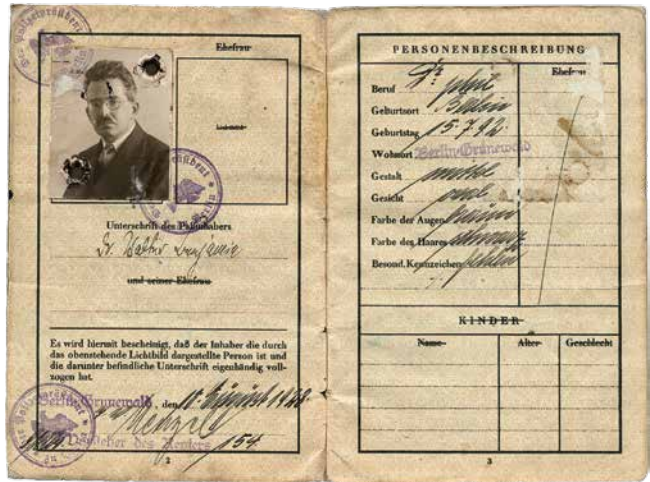 Ehefrau
Unterschrift des Paßinhabers
Dr. Walter Benjamin
und seiner Ehefrau
Es wird hiermit bescheinigt, daß der Inhaber die durch
das obenstehende Lichtbild dargestellte Person ist und
die darunter befindliche Unterschrift eigenhändig voll-
zogen hat.
Berlin-Grunewald, den 10. August 1928
Vorsteher des Reviers 154
2
PERSONENBESCHREIBUNG
Ehefrau
Beruf Dr. phil
Geburtsort Berlin
Geburtstag 15.7.92.
Wohnort Berlin-Grunewald
Gestalt mittel
Gesicht oval
Farbe der Augen braun
Farbe des Haares schwarz
Besond. Kennzeichen fehlen
KINDER
Name Alter Geschlecht
3